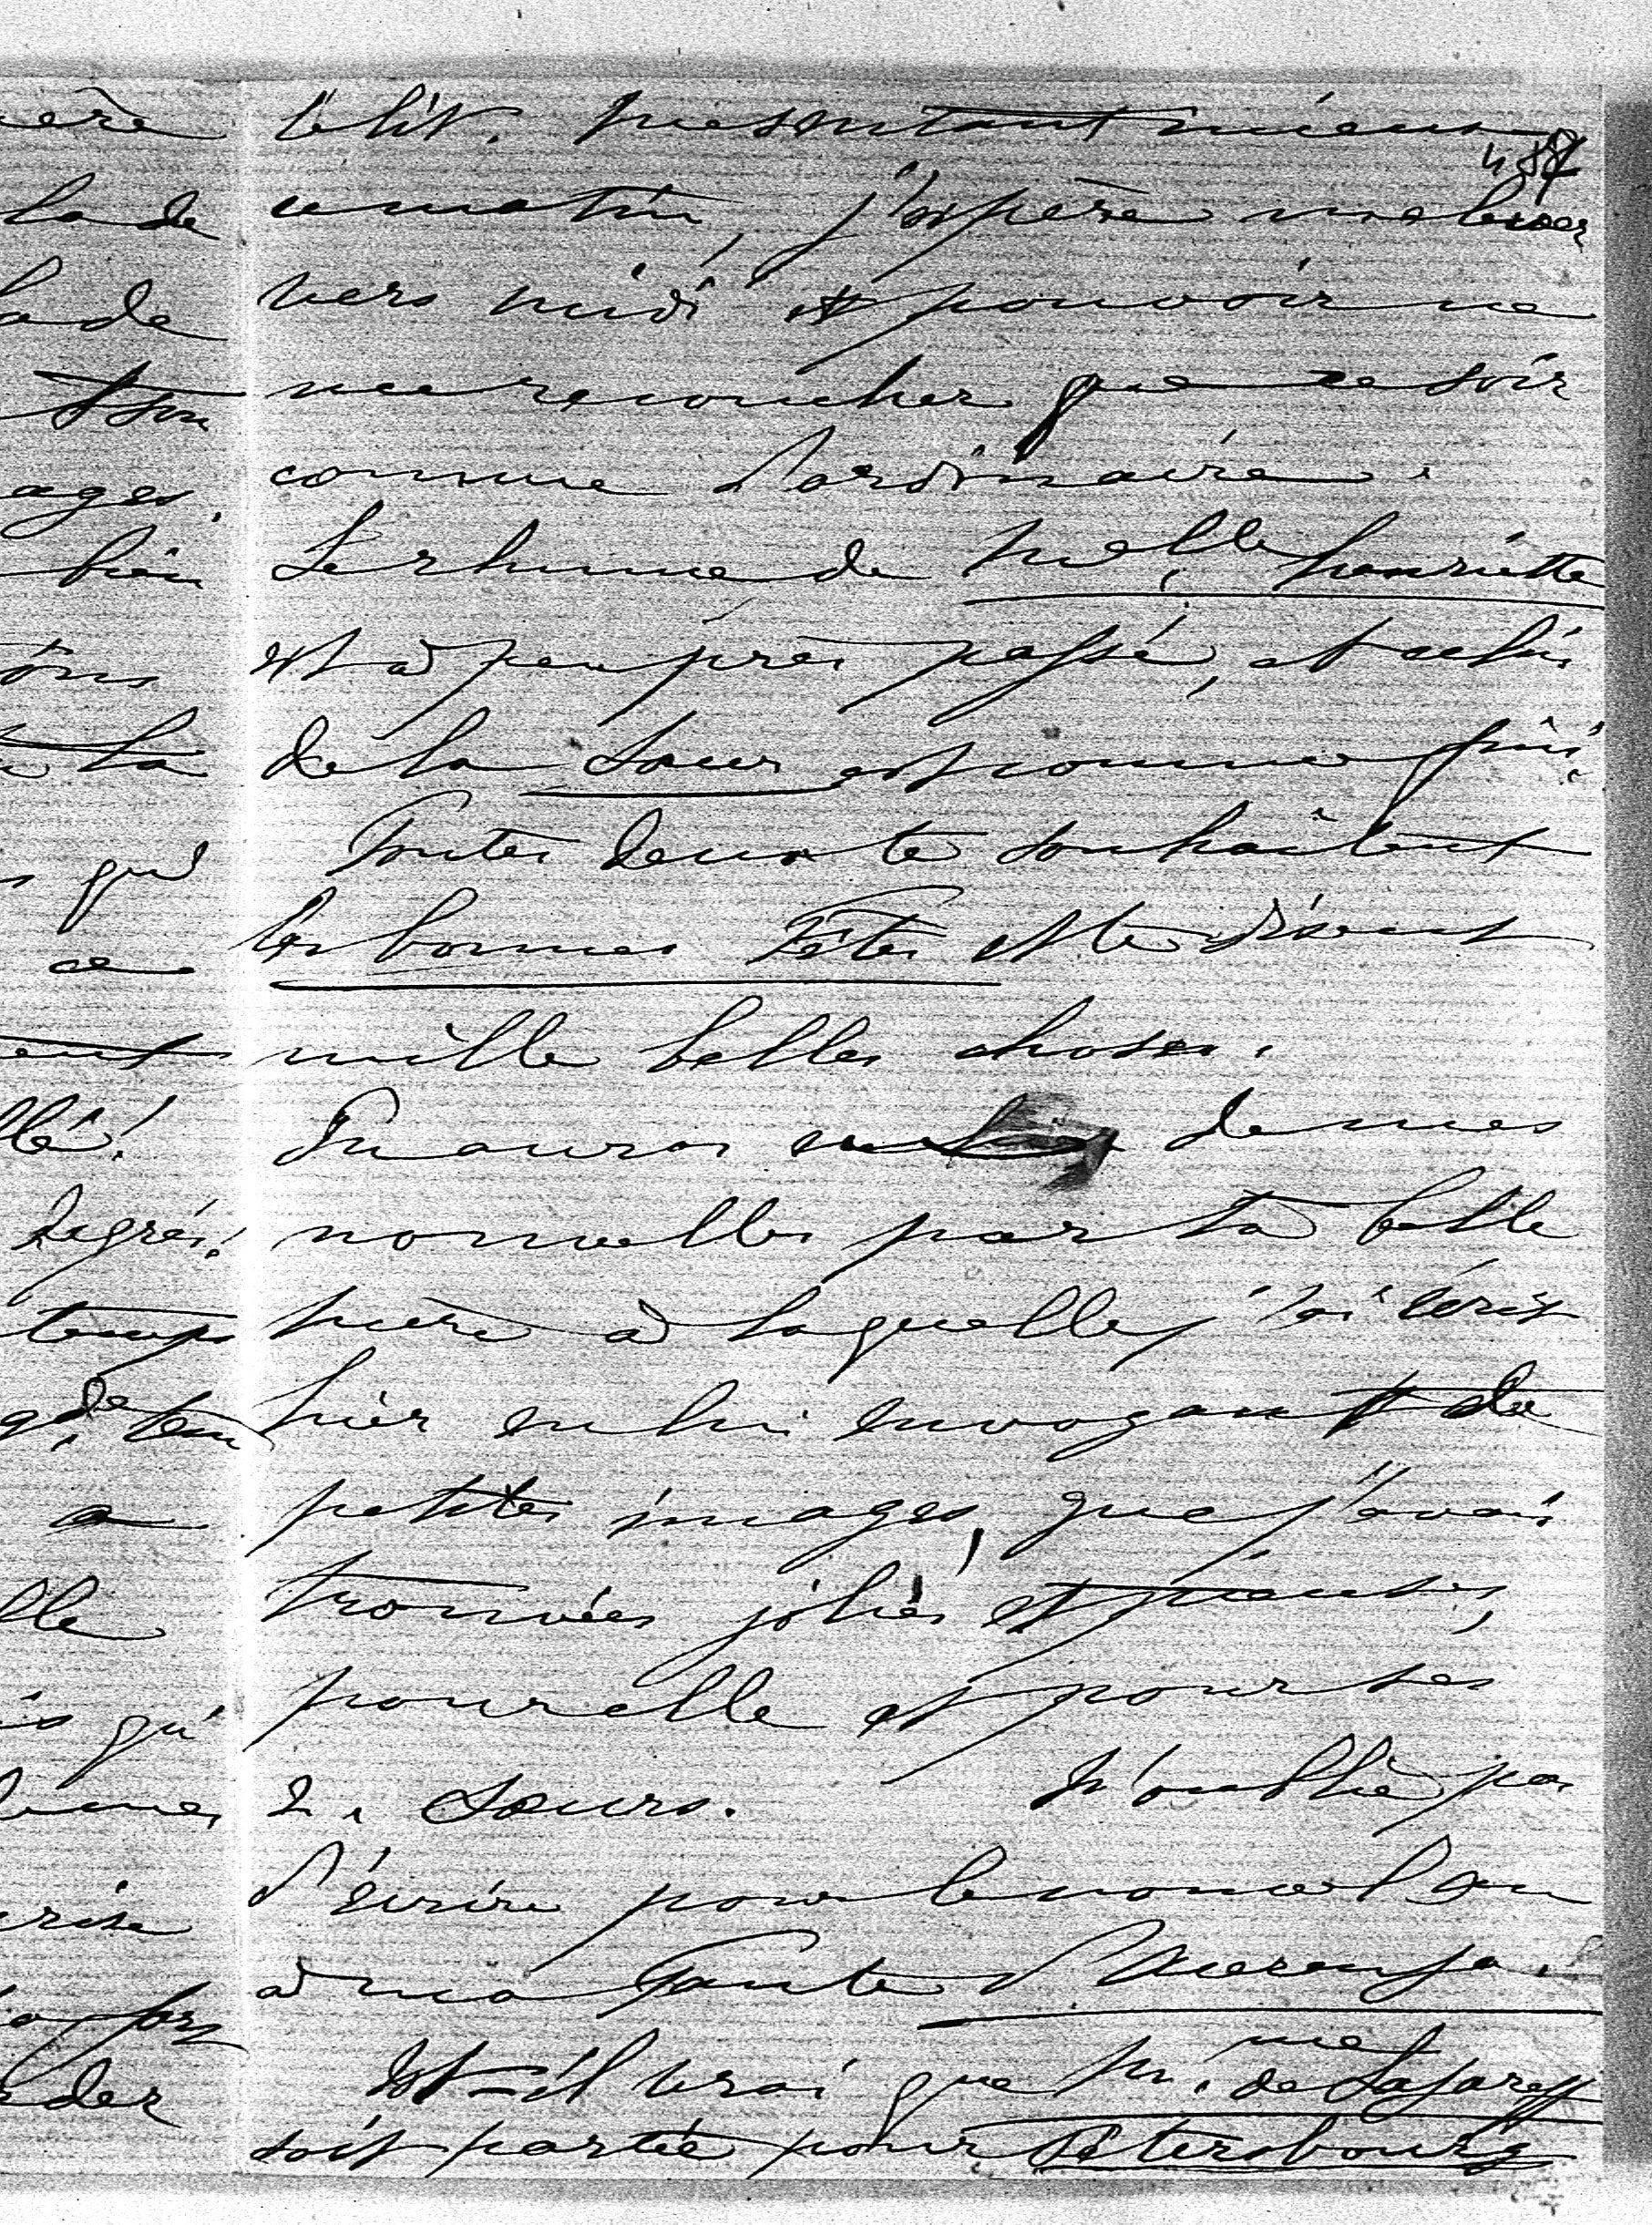 le lit. Me sentant mieux
487
ce matin, j'espère me lever
vers midi et pouvoir ne
me recoucher que ce soir
comme d'ordinaire.
Le rhume de Melle. henriette
est à peu près passé, et celui
de la Soeur est comme fini.
Toutes deux te souhaitent
les bonnes Fêtes et te disent
mille belles choses.
Tu auras de mes
nouvelles par ta belle
mère à laquelle j'ai écrit
hier en lui envoyant de
petites images, que j'avais
trouvées jolies et pieuses,
pour elle et pour ses
2. Soeurs. N'oublie pas
d'écrire pour le nouvel an
à ma Tante
Est-il vrai que Mme. de Lazareff
soit partie pour Pétersbourg
ère
lade
lade
et son
ages.
bien
la
qu'
ce
ent
llé!
degrés!
temps
de
a
lle
is qu'
rise